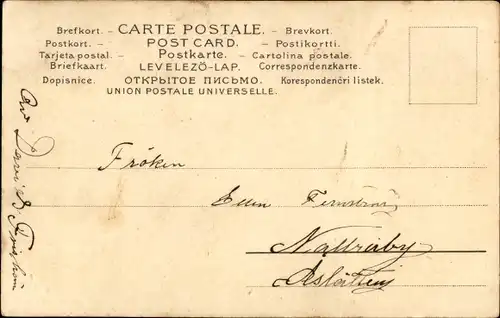 Brefkort. – CARTE POSTALE. – Brevkort.
Postkort. – POST CARD. – Postikortti.
Tarjeta postal. – Postkarte. – Cartolina postale.
Briefkaart. LEVELEZÖ-LAP. Correspondenzkarte.
Dopisnice. ОТКРЫТОЕ ПИСЬМО. Korespondenčri listek.
UNION POSTALE UNIVERSELLE.
Fröken
Ellen
Nättraby